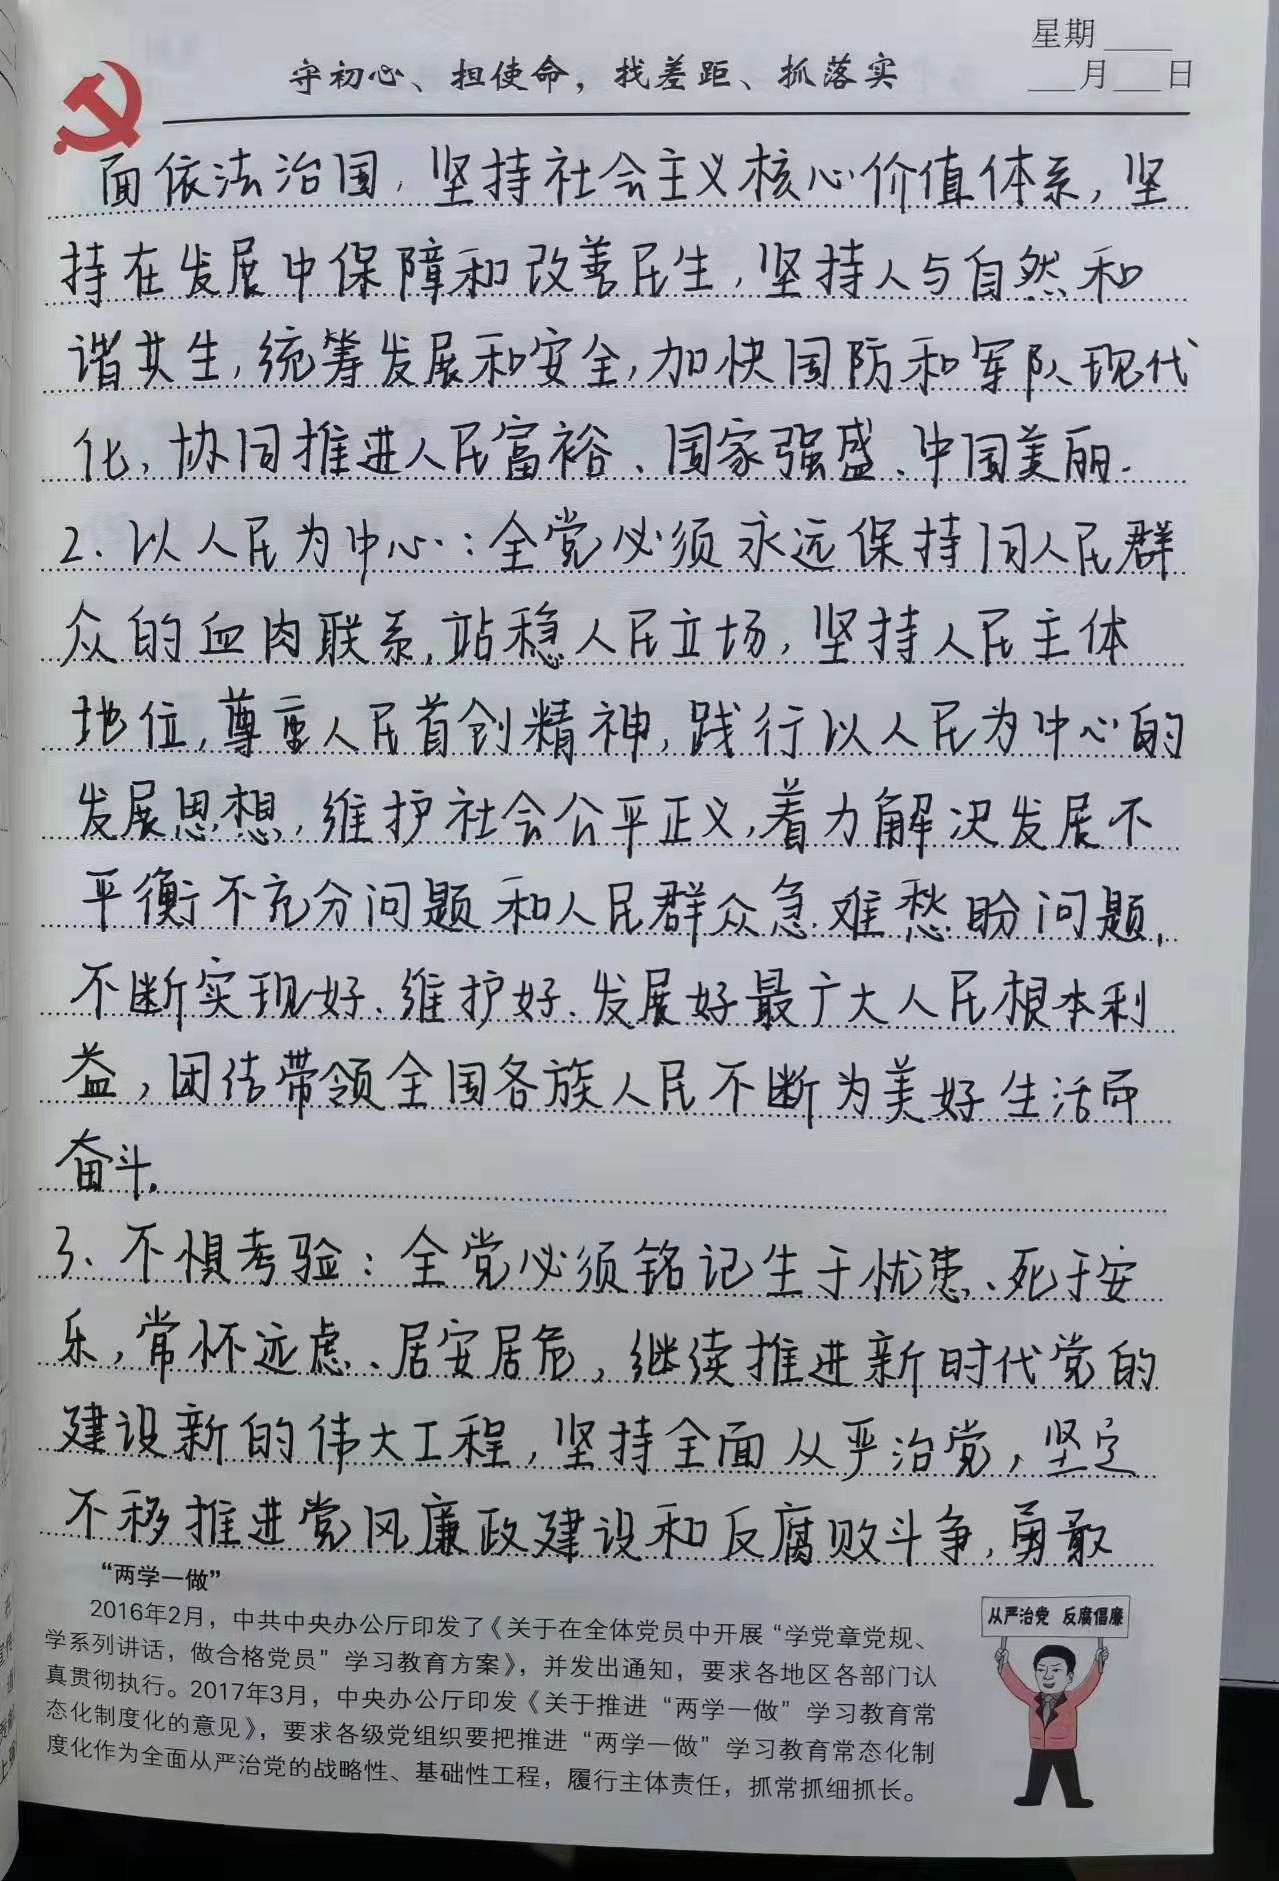 星期____
____月____日
守初心、担使命，找差距、抓落实
面依法治国，坚持社会主义核心价值体系，坚
持在发展中保障和改善民生，坚持人与自然和
谐共生，统筹发展和安全，加快国防和军队现代
化，协同推进人民富裕、国家强盛、中国美丽.
2、以人民为中心：全党必须永远保持同人民群
众的血肉联系，站稳人民立场，坚持人民主体
地位，尊重人民首创精神，践行以人民为中心的
发展思想，维护社会公平正义，着力解决发展不
平衡不充分问题和人民群众急难愁盼问题，
不断实现好、维护好、发展好最广大人民根本利
益，团结带领全国各族人民不断为美好生活而
奋斗.
3、不惧考验：全党必须铭记生于忧患、死于安
乐，常怀远虑、居安居危，继续推进新时代党的
建设新的伟大工程，坚持全面从严治党，坚定
不移推进党风廉政建设和反腐败斗争，勇敢
“两学一做”
2016年2月，中共中央办公厅印发了《关于在全体党员中开展“学党章党规、
学系列讲话，做合格党员”学习教育方案》，并发出通知，要求各地区各部门认
真贯彻执行。2017年3月，中央办公厅印发《关于推进“两学一做”学习教育常
态化制度化的意见》，要求各级党组织要把推进“两学一做”学习教育常态化制
度化作为全面从严治党的战略性、基础性工程，履行主体责任，抓常抓细抓长。
从严治党 反腐倡廉